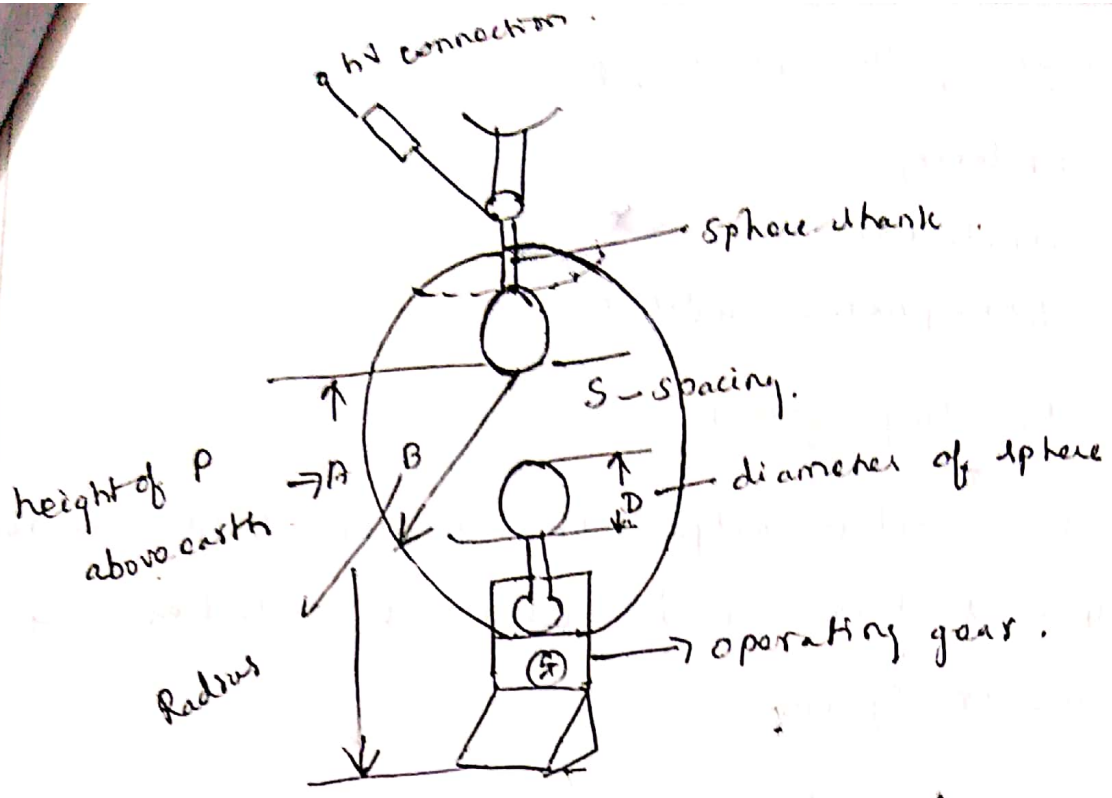 hv connection.
sphere shank.
S - spacing.
height of P
above earth
→ A
B
D
diameter of sphere
Radius
→ operating gear.